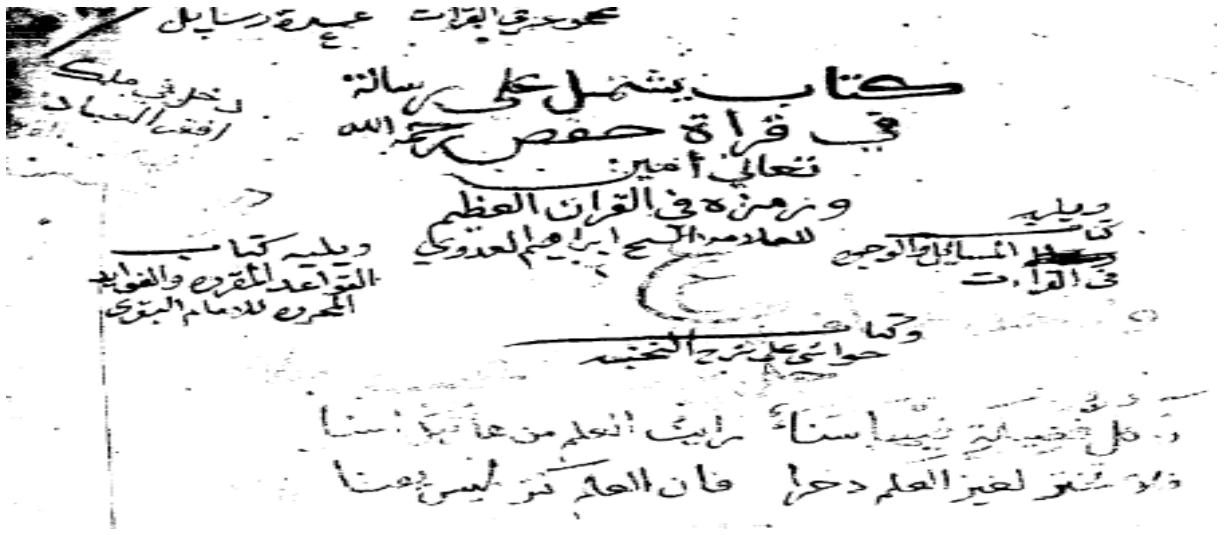 مجموعة في القرات عدة رسايل
دخل في ملك
افقر العباد
كتاب يشتمل على رسالة
في قراة حفص رحمه الله
تعالى أمين
ورمزه في القران العظيم
للعلامه الشيخ ابراهيم العدوي
ويليه
كتاب
المسايل والوجيز
في القراات
ويليه كتاب
القواعد المقرره والفوايد
المحرره للامام البقري
وكتاب
حواشي على شرح النخبه
وكل فضيلة فيها سناء رايت العلم من هاتيك اسنا
فلا تعتز لغير العلم دخرا فان العلم كنز ليس يفنا